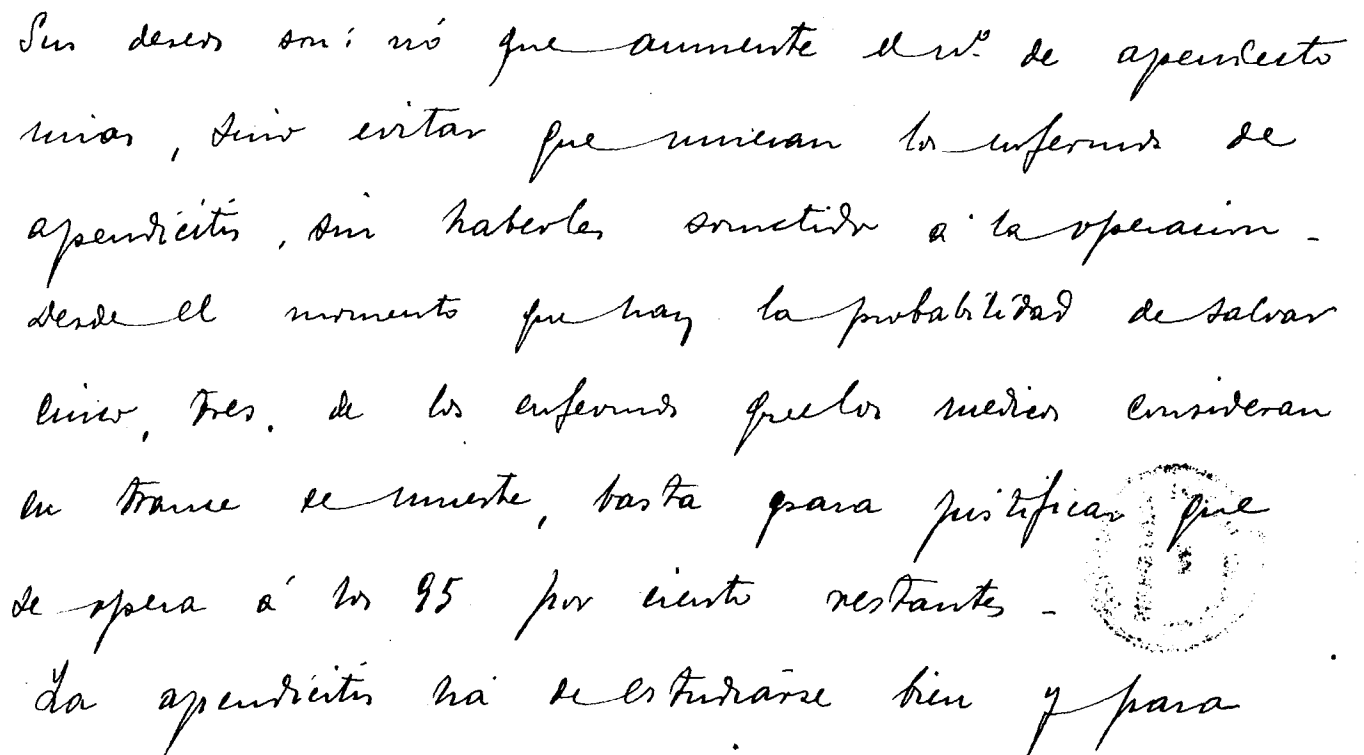 Sus deseos son: nó que aumente el nº de apendicecto
mias, sino evitar que mueran los enfermos de
apendicitis, sin haberles sometido á la operacion -
Desde el momento que hay la probabilidad de salvar
cinco, tres, de los enfermos que los medicos consideran
en trance de muerte, basta para justificar que
se opera á los 95 por ciento restantes -
La apendicitis há de estudiárse bien y para